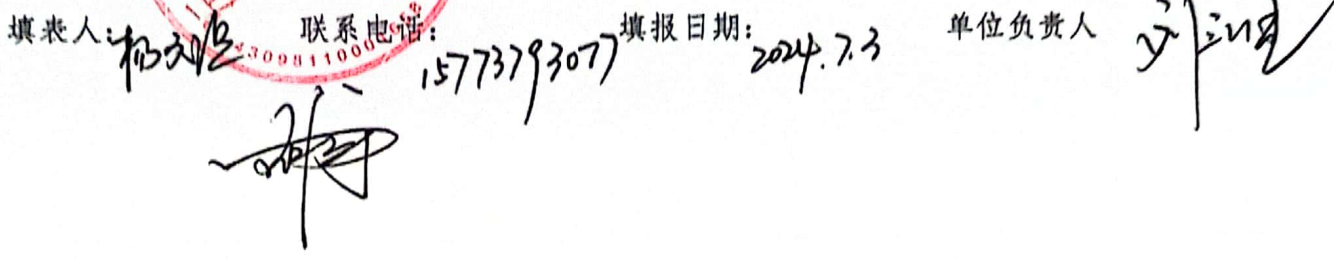 填表人：杨 联系电话：15773793077 填报日期：2024.7.3 单位负责人 刘